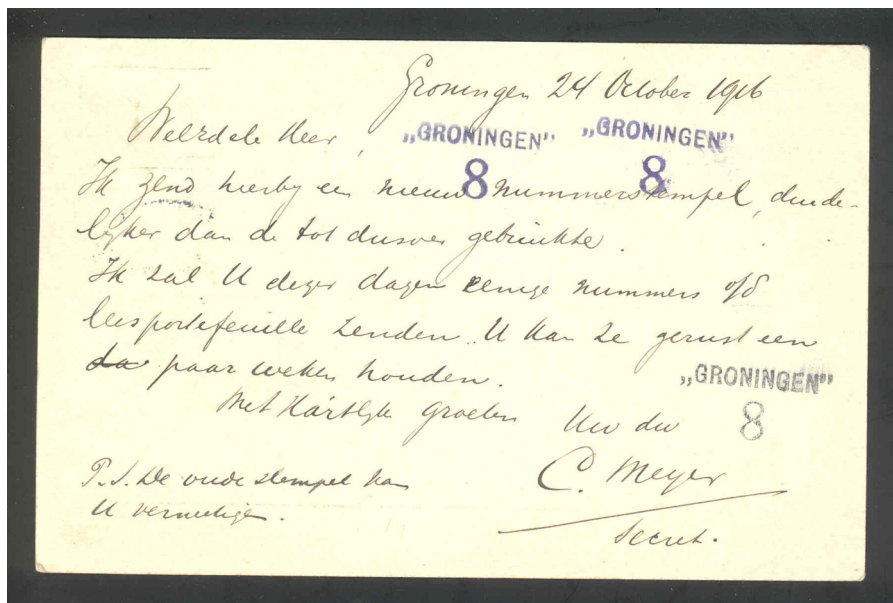 Groningen 24 October 1916
Weledele Heer,
„GRONINGEN” „GRONINGEN”
8 8
Ik zend hierby een nieuw nummerstempel, duide-
lyker dan de tot dusver gebruikte.
Ik zal U dezer dagen eenige nummers o/d
leesportefeuille zenden. U kan ze gerust een
paar weken houden.
„GRONINGEN”
8
Met Hartlyke groeten Uw dw
C. Meyer
Secret.
P.S. De oude stempel kan
U vernietigen.